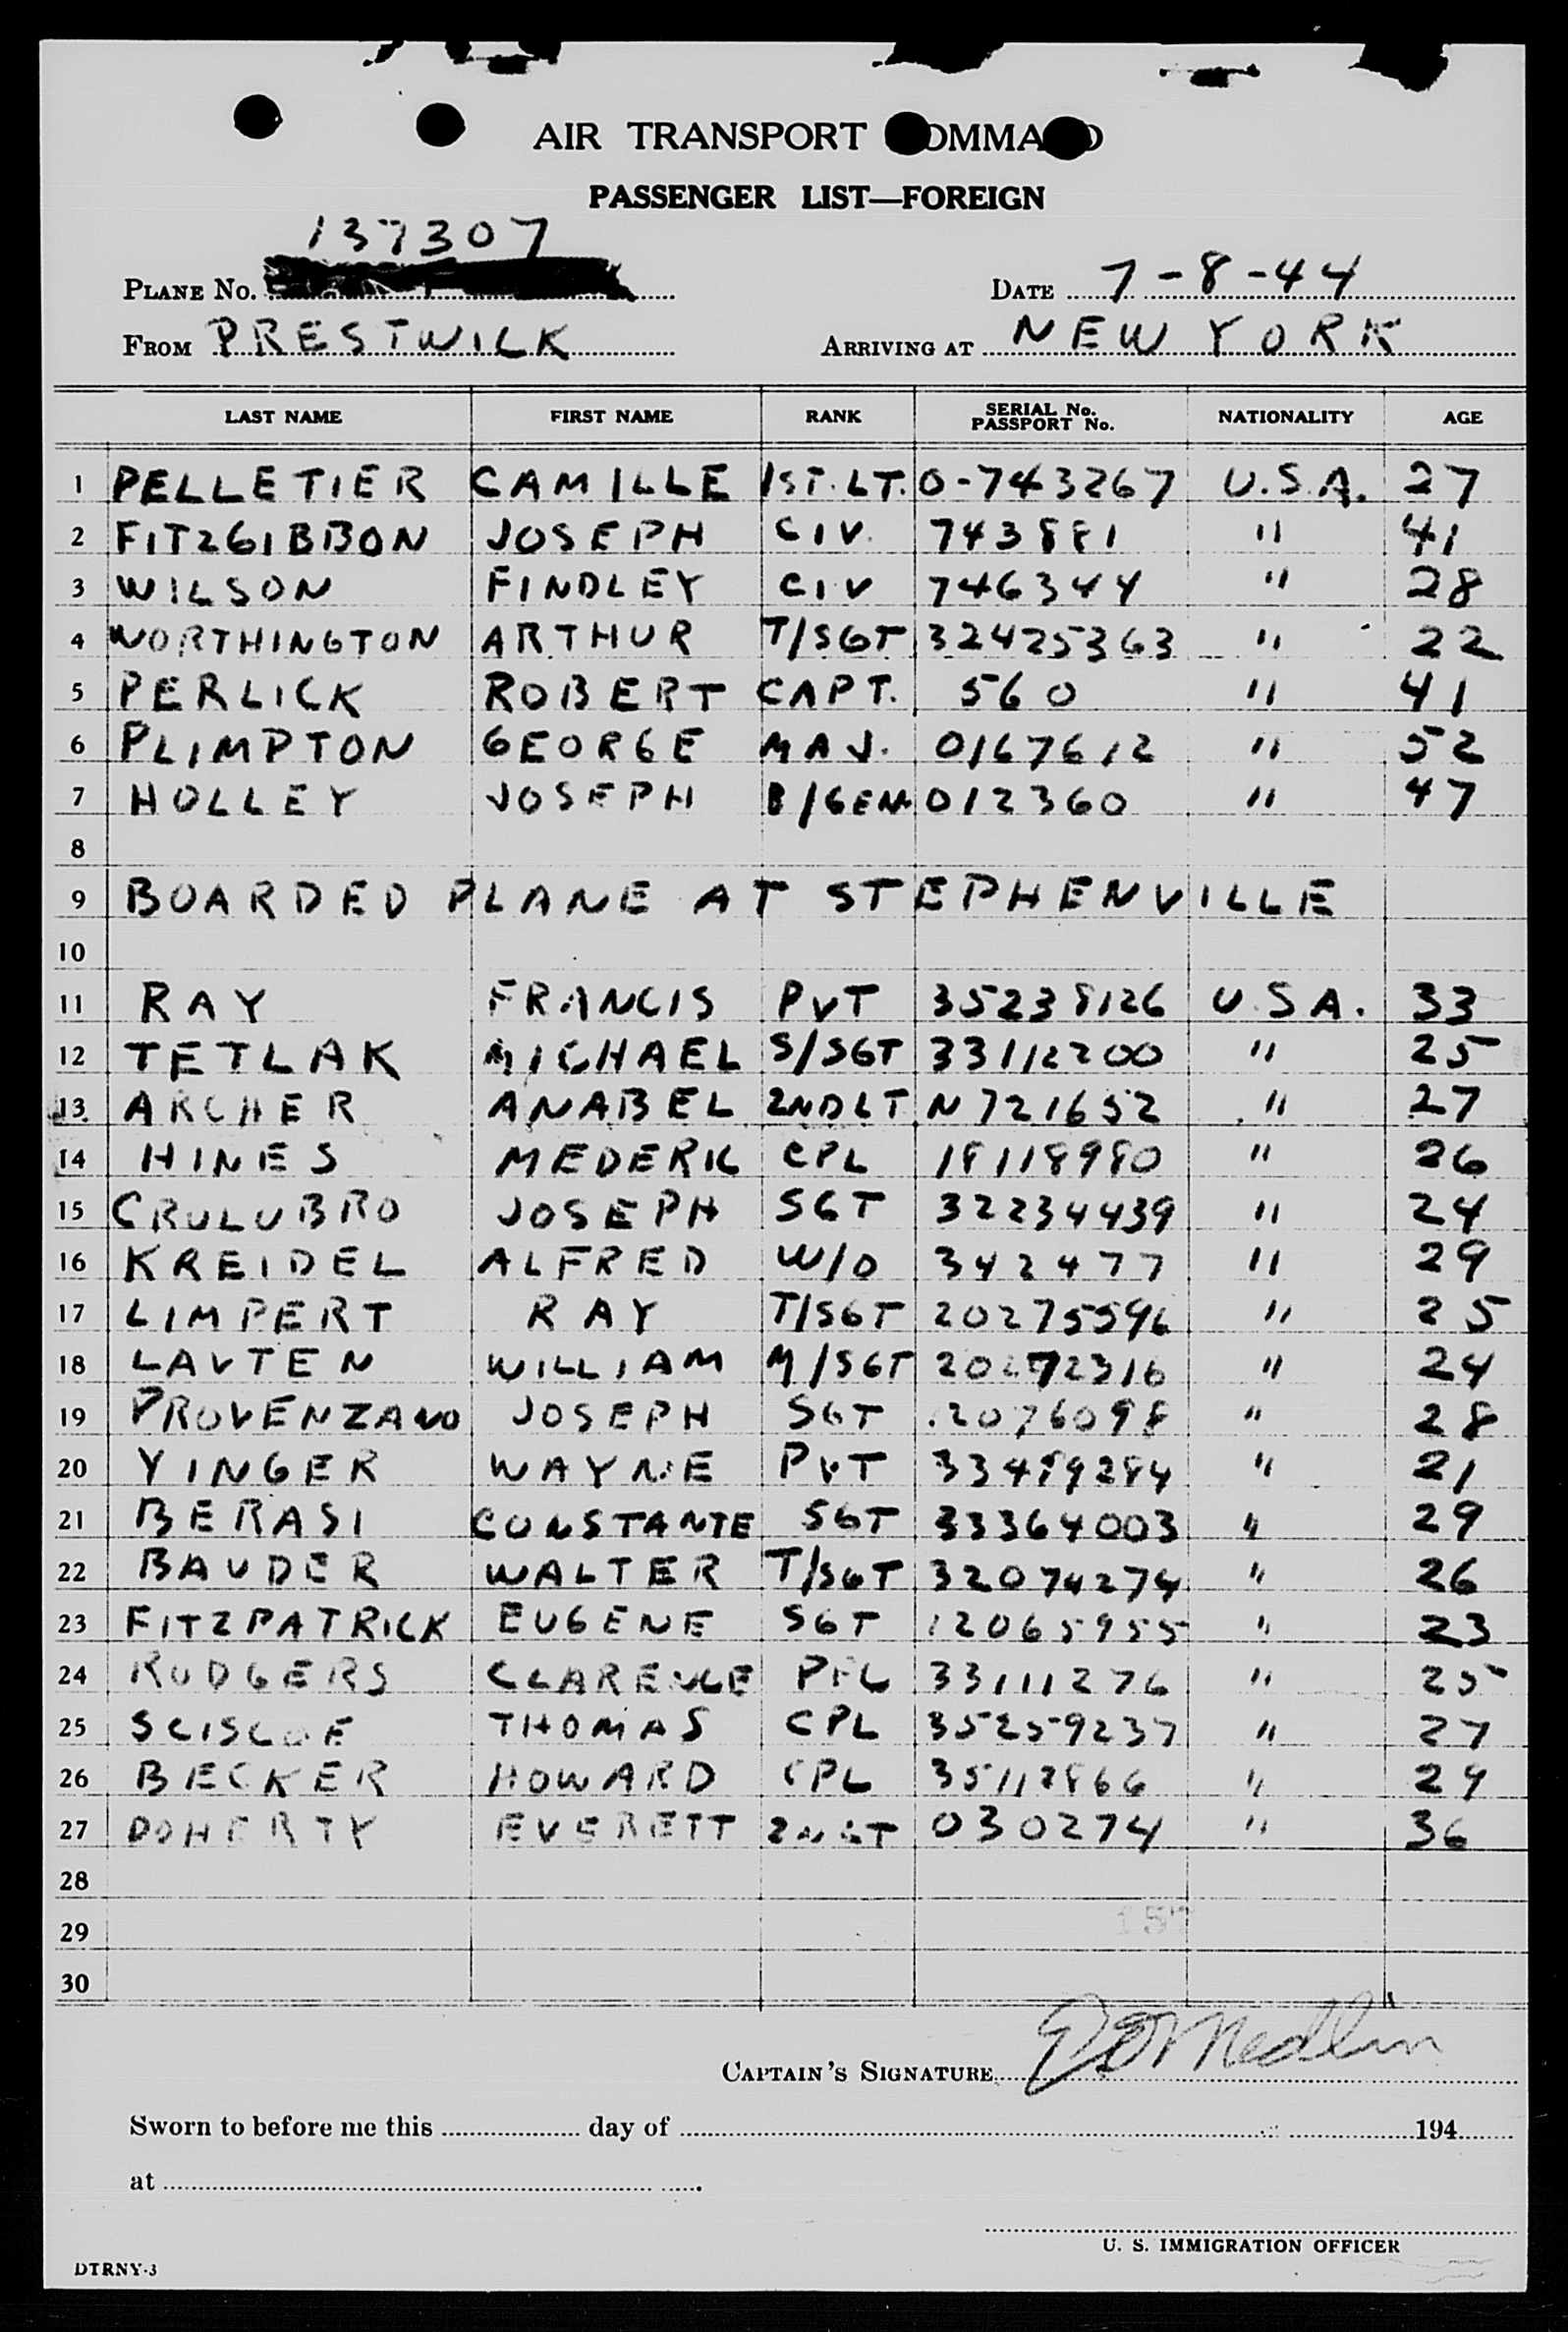 AIR TRANSPORT COMMAND
PASSENGER LIST—FOREIGN
137307
PLANE No.
DATE 7-8-44
FROM PRESTWICK
ARRIVING AT NEW YORK
LAST NAME FIRST NAME RANK SERIAL No. PASSPORT No. NATIONALITY AGE
1 PELLETIER CAMILLE 1ST. LT. 0-743267 U.S.A. 27
2 FITZGIBBON JOSEPH CIV. 743881 " 41
3 WILSON FINDLEY CIV 746344 " 28
4 WORTHINGTON ARTHUR T/SGT 32425363 " 22
5 PERLICK ROBERT CAPT. 560 " 41
6 PLIMPTON GEORGE MAJ. 0167612 " 52
7 HOLLEY JOSEPH B/GEN 012360 " 47
8
9 BOARDED PLANE AT STEPHENVILLE
10
11 RAY FRANCIS PVT 35238126 U.S.A. 33
12 TETLAK MICHAEL S/SGT 33112200 " 25
13 ARCHER ANABEL 2NDLT N721652 " 27
14 HINES MEDERIC CPL 18118980 " 26
15 CRULUBRO JOSEPH SGT 32234439 " 24
16 KREIDEL ALFRED W/O 342477 " 29
17 LIMPERT RAY T/SGT 20275596 " 25
18 LAVTEN WILLIAM M/SGT 20272316 " 24
19 PROVENZANO JOSEPH SGT 12076098 " 28
20 YINGER WAYNE PVT 33489284 " 21
21 BERASI CONSTANTE SGT 33364003 " 29
22 BAUDER WALTER T/SGT 32074274 " 26
23 FITZPATRICK EUGENE SGT 12065955 " 23
24 RODGERS CLARENCE PFC 33111276 " 25
25 SCISCOE THOMAS CPL 35259237 " 27
26 BECKER HOWARD CPL 35112866 " 29
27 DOHERTY EVERETT 2NDLT 030274 " 36
28
29
30
CAPTAIN'S SIGNATURE Medlin
Sworn to before me this day of 194
at
U. S. IMMIGRATION OFFICER
DTRNY-3